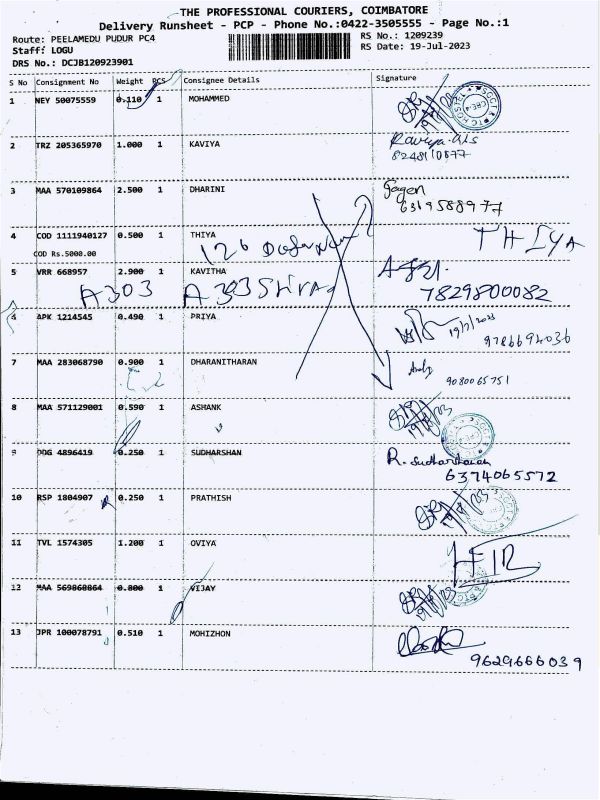 THE PROFESSIONAL COURIERS, COIMBATORE
Delivery Runsheet - PCP - Phone No.:0422-3505555 - Page No.:1
Route: PEELAMEDU PUDUR PC4 RS No.: 1209239
Stafff: LOGU RS Date: 19-Jul-2023
DRS No.: DCJB120923901
S No Consignment No Weight PCS Consignee Details Signature
1 NEY 50075559 0.110 1 MOHAMMED
2 TRZ 205365970 1.000 1 KAVIYA
3 MAA 570109864 2.500 1 DHARINI
Gagen
6319588977
4 COD 1111940127 0.500 1 THIYA THIYA
COD Rs.5000.00
126
5 VRR 668957 2.900 1 KAVITHA
A303 A 303
7829800082
6 APK 1214545 0.490 1 PRIYA
19/7/2023
9786694036
7 MAA 283068790 0.900 1 DHARANITHARAN
9080065751
8 MAA 571129001 0.590 1 ASHANK
9 DDG 4896419 0.250 1 SUDHARSHAN R. Sudharshanan
6374065572
10 RSP 1804907 0.250 1 PRATHISH
11 TVL 1574305 1.200 1 OVIYA
12 MAA 569868864 0.800 1 VIJAY
13 JPR 100078791 0.510 1 MOHIZHON
9629666039